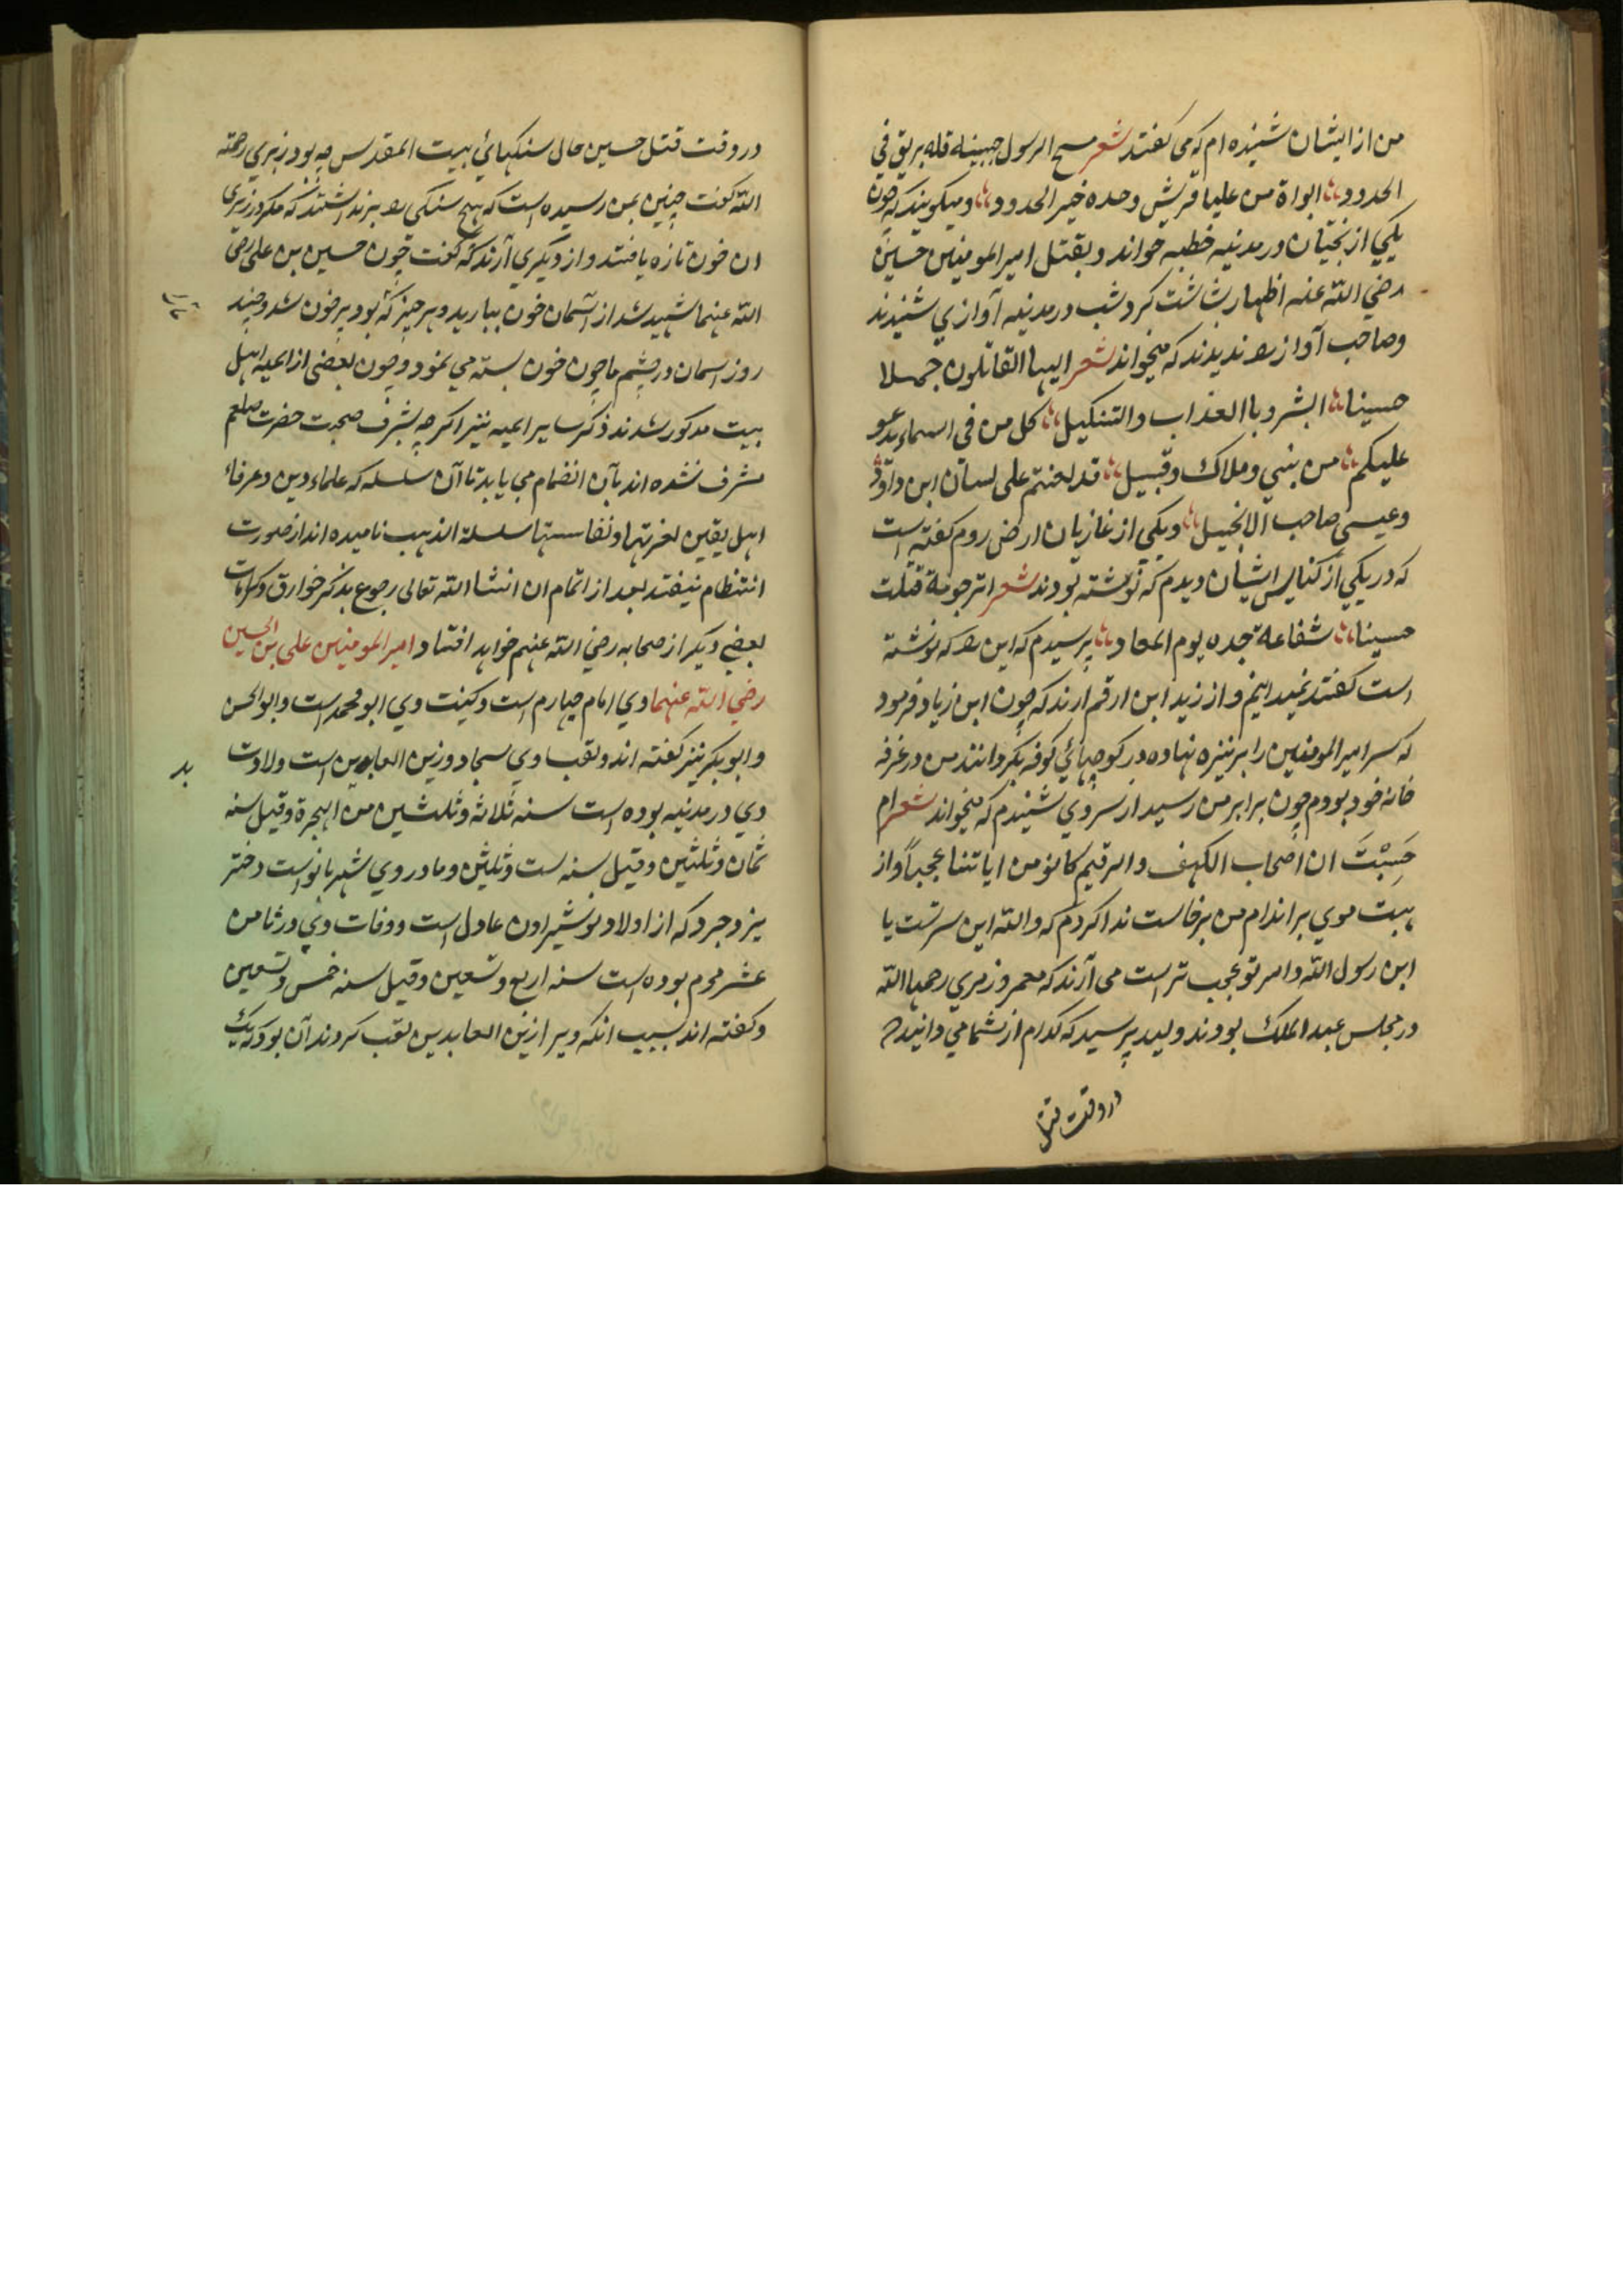 من از ایشان شنیده ام که می کفتند شعر مسح الرسول جبینه فله بریق فی
الحدود ابواة من علیا قریش وحده خیر الحدود ومیکویند که چون
یکی از نجتیان در مدینه خطبه خواند و بقتل امیر المومنین حسین
رضی الله عنه اظهار بشاشت کرد شب در مدینه آوازی شنیدند
وصاحب آواز را ندیدند که میخواند شعر ایها القاتلون جهلا
حسینا البشرو باالعذاب والتنکیل کل من فی اسماء یدعو
علیکم من بنی وملاک وقبیل قد لعنتم علی لسان ابن داوٗد
وعیسی صاحب الانجیل ویکی از غازیان ارض روم کفته است
که در یکی از کنایس ایشان دیدم که نوشته بودند شعر اترجومة قتلت
حسینا شفاعة جده یوم المعاد پرسیدم که این را که نوشته
است کفتند نمیدانیم و از زید ابن ارقم ارند که چون ابن زیاد فرمود
که سر امیر المومنین را بر نیزه نهاده در کوچهائ کوفه بکردانند من در غرفه
خانه خود بودم چون برابر من رسید از سر وی شنیدم که میخواند شعر ام
حَسِبْتَ ان اصحاب الکهف والرقیم کانو من ایاتنا عجباً و از
هیبت موی بر اندام من برخاست ندا کردم که والله این سر تست یا
ابن رسول الله و امر تو عجب تر است می آرند که معمر و زهری رحمها الله
در مجلس عبد الملک بودند ولید پرسید که کدام از شما می دانید که
در وقت قتل
در وقت قتل حسین حال سنکهائ بیت المقدس چه بود زهری رحمة
الله کفت چنین بمن رسیده است که هیچ سنکی را بر نداشتند که مکر در زیر
ان خون تازه یافتند و از دیکری آرند که کفت چون حسین بن علی رضی
الله عنهما شهید شد از آسمان خون ببارید و هر چیز که بود پر خون شد و چند
روز اسمان در چشم ما چون خون بسته می نمود و چون بعضی از ائمه اهل
بیت مذکور شدند ذکر سایر ائمه نیز اکرچه بشرف صحبت حضرت صلعم
مشرف نشده اند بآن انضمام می یابد تا آن سلسله که علماء دین و عرفاء
اهل یقین لعزتها و نفاستها سلسلة الذهب نامیده اند از صورت
انتظام نیفتد بعد از اتمام ان انشا الله تعالی رجوع بذکر خوارق و کرامات
بعضی دیکر از صحابه رضی الله عنهم خواهد افتاد امیر المومنین علی بن الحسین
رضی الله عنهما وی امام چهارم است و کنیت وی ابو محمد است و ابو الحسن
و ابو بکر نیز کفته اند و لقب وی سجاد و زین العابدین است ولادت
وی در مدینه بوده است سنه ثلاثه وثلثین من الهجرة وقیل سنه
ثمان وثلثین وقیل سنه ست وثلثین و مادر وی شهر بانو است دختر
یزدجرد که از اولاد نوشیراون عادل است و وفات وی در ثامن
عشر محرم بوده است سنه اربع وتسعین وقیل سنه خمس وتسعین
و کفته اند بسبب انکه ویرا زین العابدین لقب کردند آن بود که یک